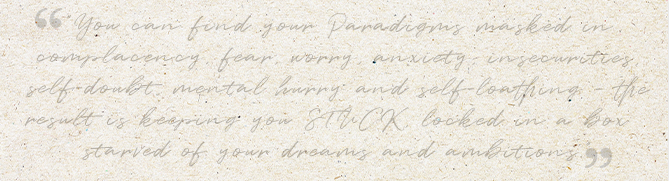 “You can find your Paradigms masked in
complacency, fear, worry, anxiety, insecurities,
self-doubt, mental hurry and self-loathing - the
result is keeping you STUCK, locked in a box
starved of your dreams and ambitions”